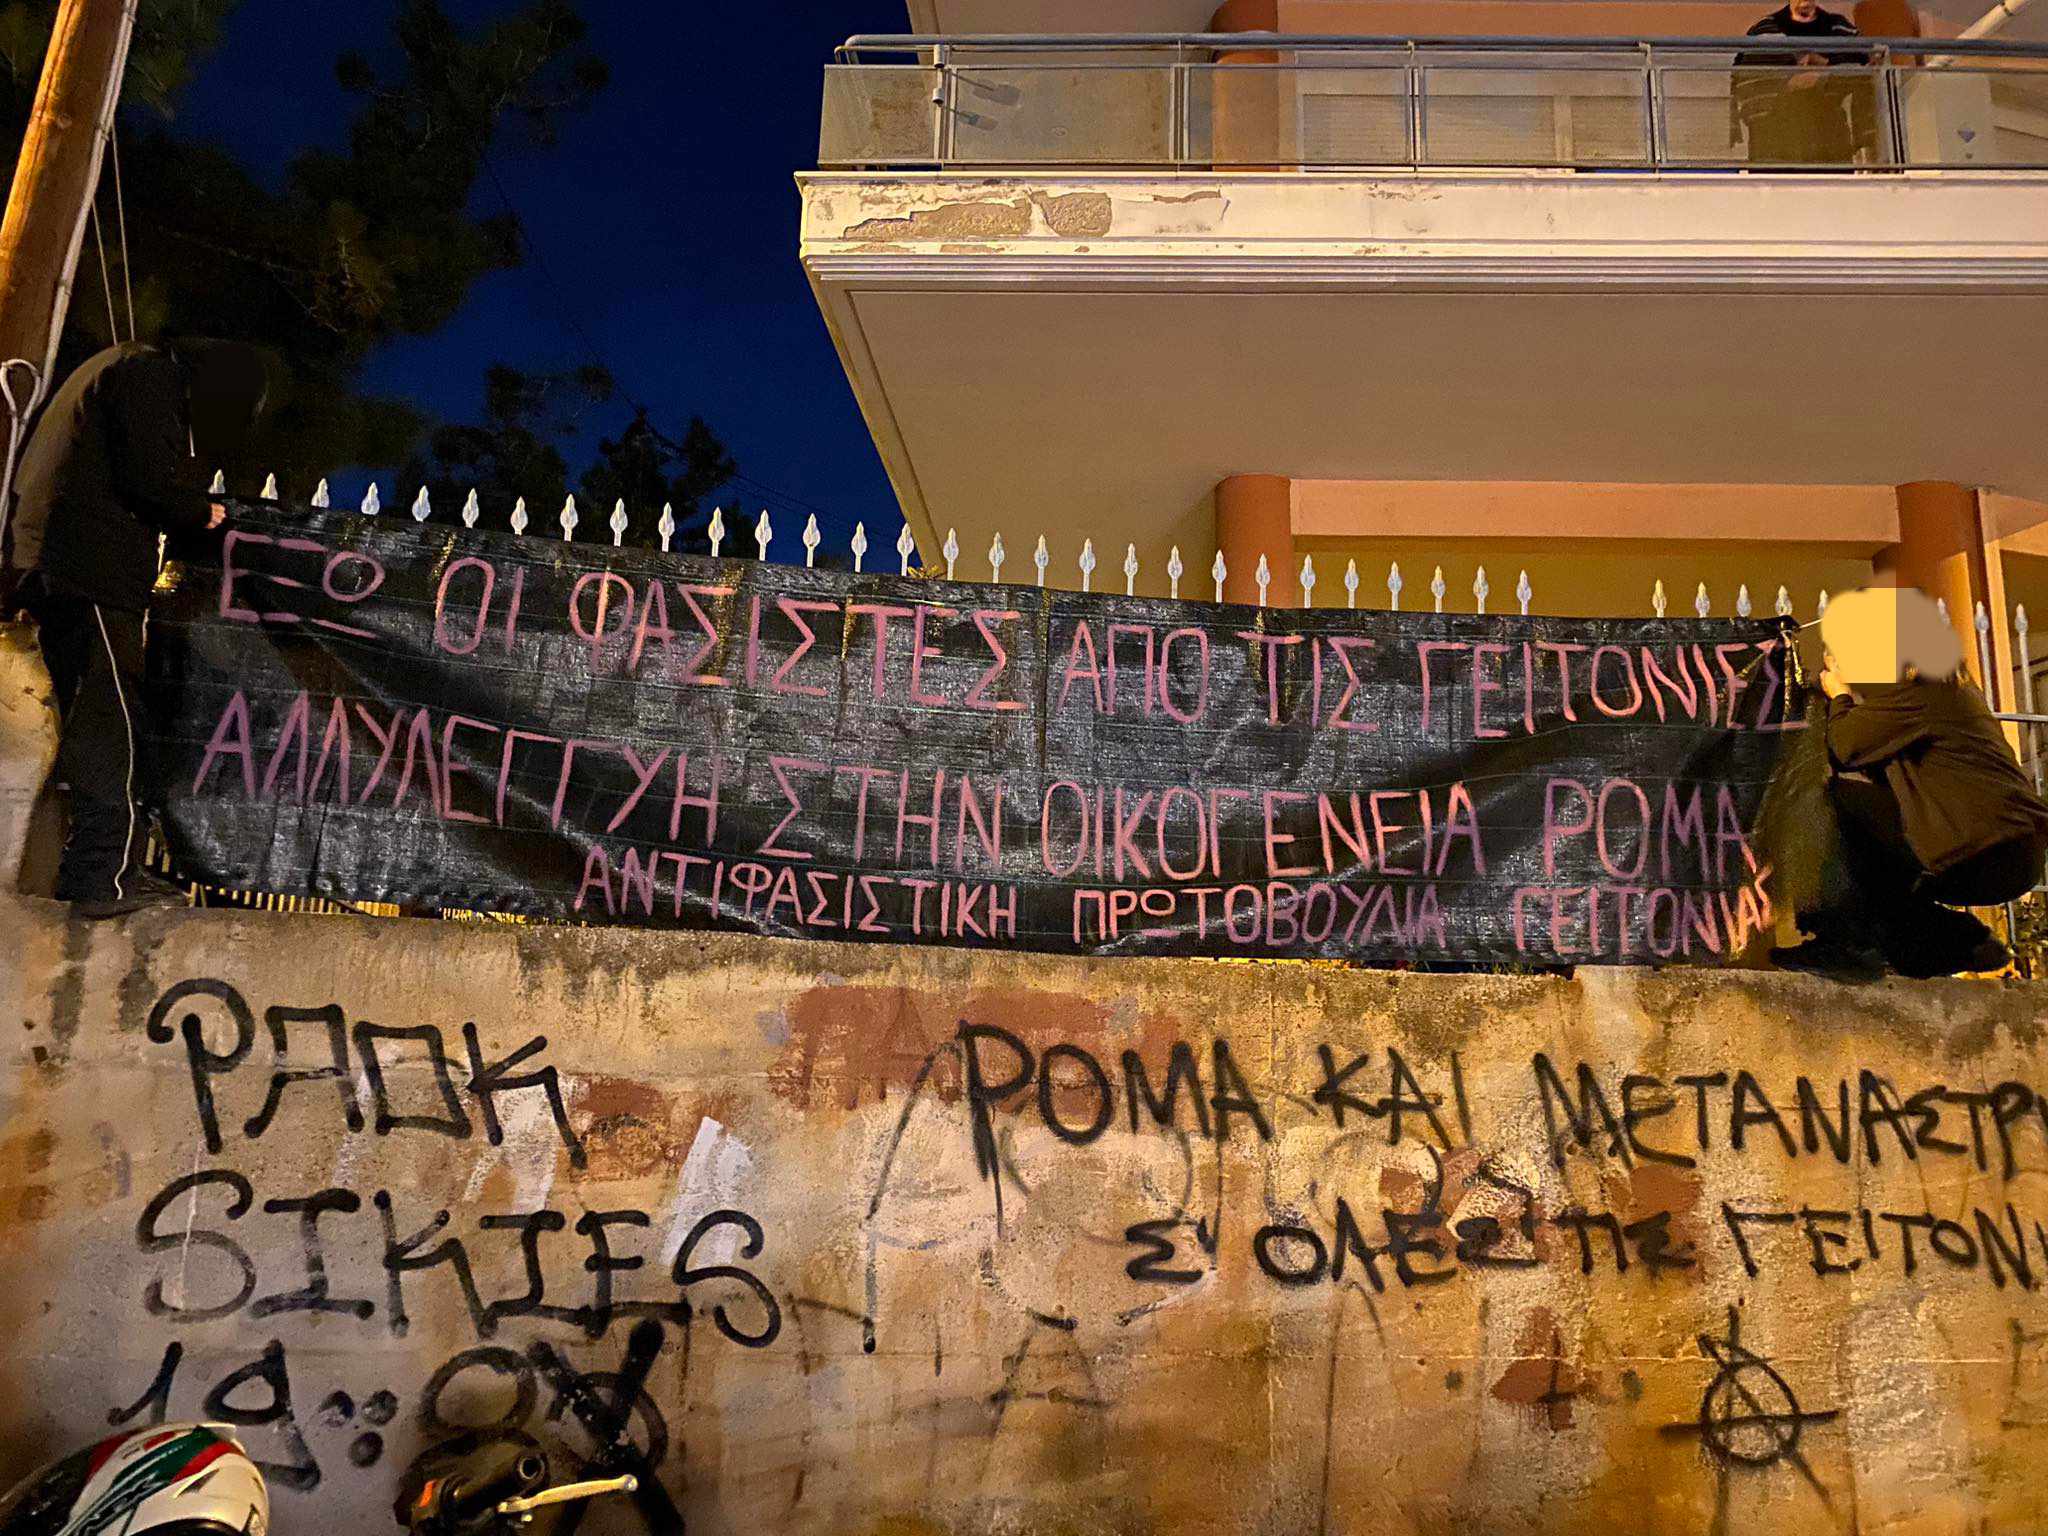 ΕΞΩ ΟΙ ΦΑΣΙΣΤΕΣ ΑΠΟ ΤΙΣ ΓΕΙΤΟΝΙΕΣ
ΑΛΛΥΛΕΓΓΥΗ ΣΤΗΝ ΟΙΚΟΓΕΝΕΙΑ ΡΟΜΑ
ΑΝΤΙΦΑΣΙΣΤΙΚΗ ΠΡΩΤΟΒΟΥΛΙΑ ΓΕΙΤΟΝΙΑΣ
PAOK
SIKIES
ΡΟΜΑ ΚΑΙ ΜΕΤΑΝΑΣΤΡΙ
Σ' ΟΛΕΣ ΤΙΣ ΓΕΙΤΟΝΙ